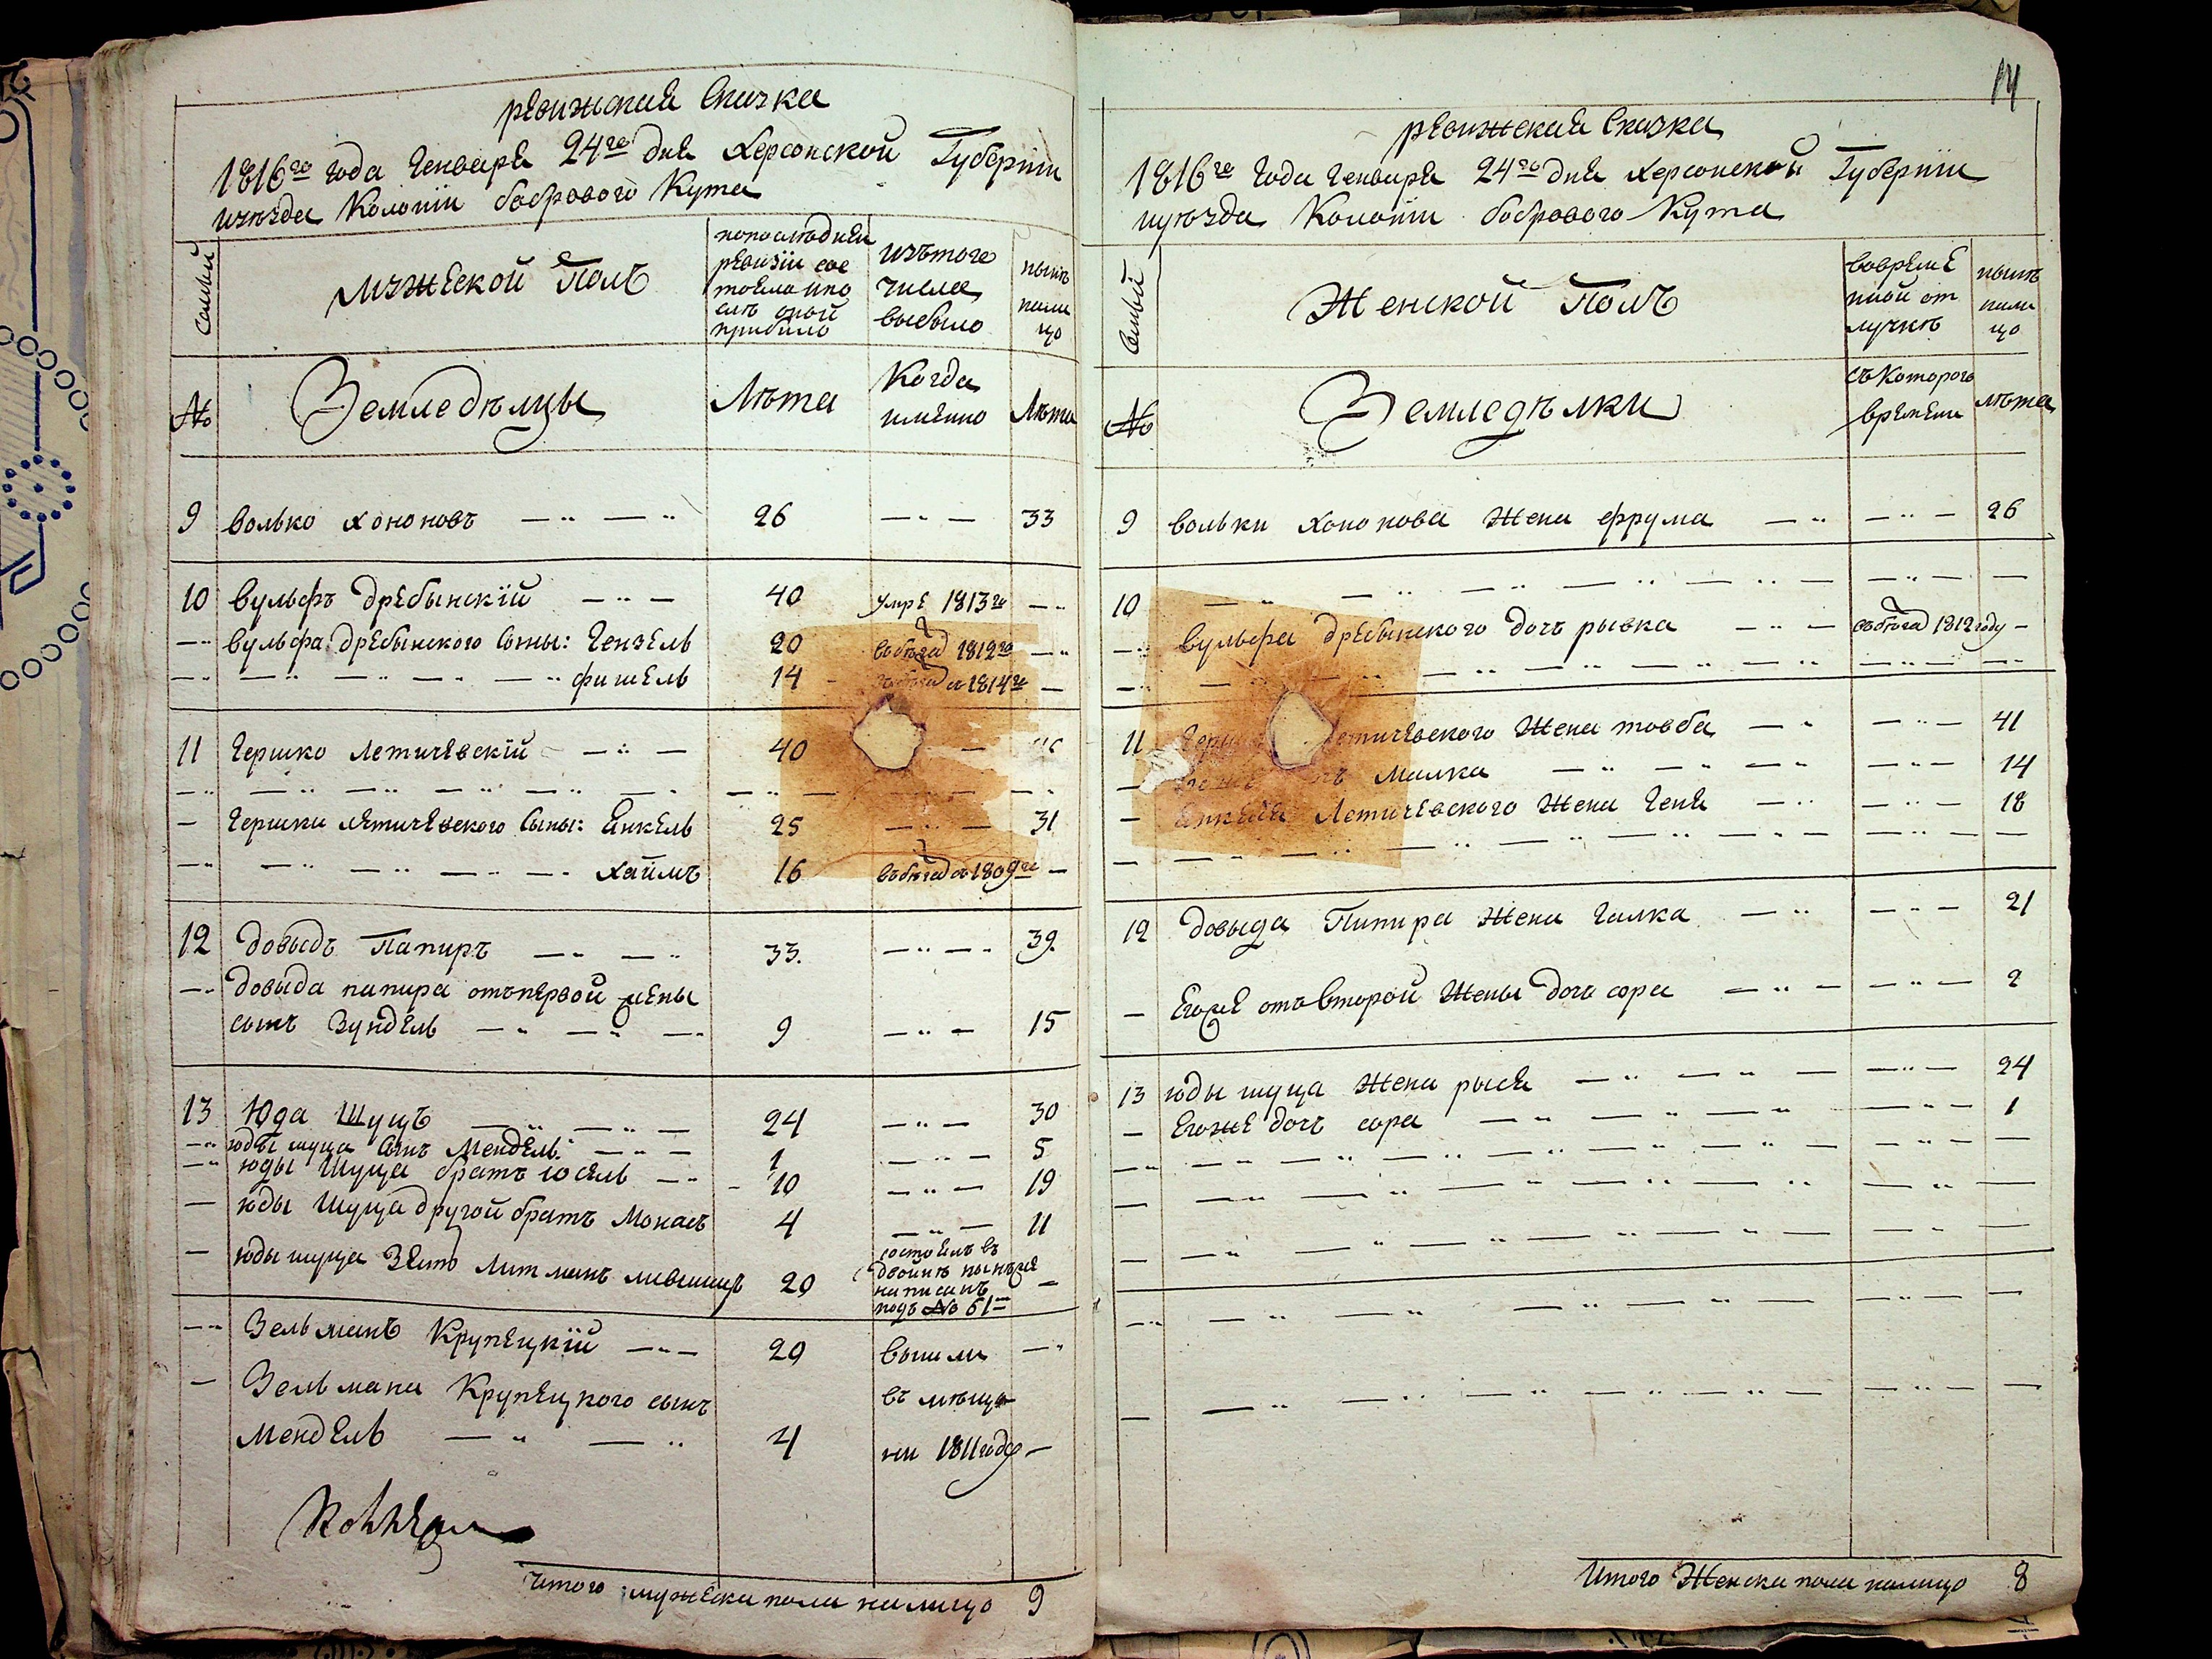 ревижская Сказка
1816го года Генваря 24го дня Херсонской Губернїи
уѣзда Колонїи бобрового Кута
Семьи
мужеской Полъ
попоследнеи
ревизїи сос
тояло ипо
слѣ оной
прибыло
изътого
числа
выбыло
нынѣ
нали
цо
№
Земледѣлцы
Лѣта
Когда
имянно
Лѣта
9 волько хононовъ 26 33
10 вульфъ дребынскїй 40 умре 1813го
вульфа дребынского Сыны: Гензель 20 въбегах 1812го
фишель 14 1814го
11 Гершко летичевскїй 40
Гершки летичевского Сыны: Янкель 25 31
хаймъ 16 въбегах 1809го
12 довыдъ Папиръ 33. 39.
довыда папира отъпервой жены
сынъ Зундель 9 15
13 Юда Шуцъ 24 30
юды шуца Сынъ Мендель 1 5
юды Шуца братъ іосель 10 19
юды Шуца другой братъ Монасъ 4 11
юды шуца Зять литманъ лившицъ 20 состоялъ въ
двойнѣ нынеже
написанъ
подъ № 61м
Зельманъ Крупецкїй 29 вышли
Зельмана Крупецкого сынъ въ меща
Мендель 4 ни 1811году
Итого мужеска пола налицо 9
14
ревижская Сказка
1816го Года Генваря 24го дня херсонской Губернїи
уезда Колонїи бобрового Кута
Семьи
Женской Полъ
вовреме
нной от
лучкѣ
нынѣ
нали
цо
№
Земледѣлки
съ Которого
времени
лѣта
9 вольки хононова Жена фрума 26
10
вульфа дребынского дочь рывка въбегах 1812году
11 Летичевского Жена товба 41
Малка 14
Янкеля Летичевского Жена Геня 18
12 довыда Папира Жена Галка 21
Егоже отъвторой Жены дочь сора 2
13 юды шуца Жена рыся 24
Егоже дочь сора 1
Итого Женска пола налицо 8